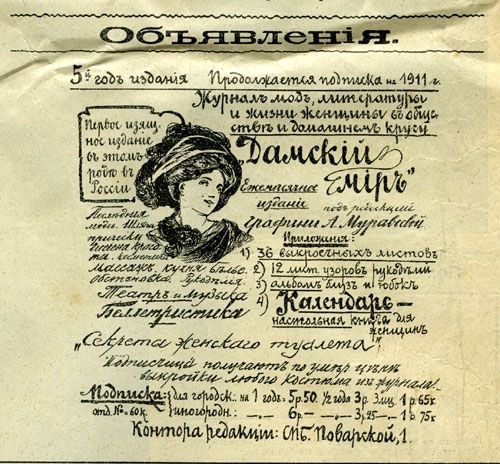 Объявленія.
5й годъ изданія Продолжается подписка на 1911 г.
Журналъ модъ, литературы
и жизни женщины въ обще-
ствѣ и домашнемъ кругу
Первое изящ-
ное изданіе
въ этомъ
родѣ въ
Россіи
„Дамскій
міръ"
Ежемѣсячное
изданіе
подъ редакціей
графини А. Муравьевой
Послѣднія
моды. Шляпы
прически
Гигіена красо-
та. косметика
массажъ, кухня бѣлье.
обстановка рукодѣлія
Театръ и Музыка
Беллетристика
Приложенія:
1) 36 выкроечныхъ листовъ
2) 12 лист. узоровъ рукодѣлій
3) альбомъ блузъ и юбокъ
4) Календарь –
настольная книга для
женщинъ
„Секреты женскаго туалета"
Подписчицы получаютъ по умѣр. цѣнѣ
выкройки любого костюма изъ журнала!
Подписка: для городск.: на 1 годъ 5р.50. ½ года 3р. 3 мц. 1 р. 65к
отд. № - 60к. иногородн.: – 6р – – 3р.25 – 1 р. 75к
Контора редакціи: СПБ. Поварской, 1.